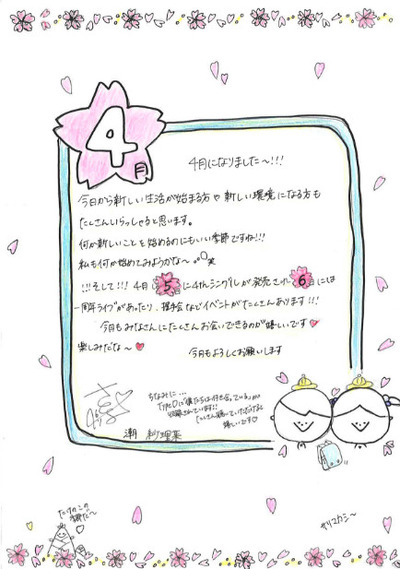 4月
4月になりました〜!!!
今日から新しい生活が始まる方や新しい環境になる方も
たくさんいらっしゃると思います。
何か新しいことを始めるのにもいい季節ですね!!!
私も何か始めてみようかな〜 笑
!!!そして!!! 4月5日に4thシングルが発売され6日には
一周年ライブがあったり、握手会などイベントがたくさんあります!!!
今月もみなさんにたくさんお会いできるのが嬉しいです♥
楽しみだな〜♥
今月もよろしくお願いします
ちなみに...
TypeDに僕たちは付き合っている が
収録されています!!
たくさん聴いていただけると
嬉しいです♡
潮 紗理菜
たけのこの
季節だ〜
サリマカシ〜